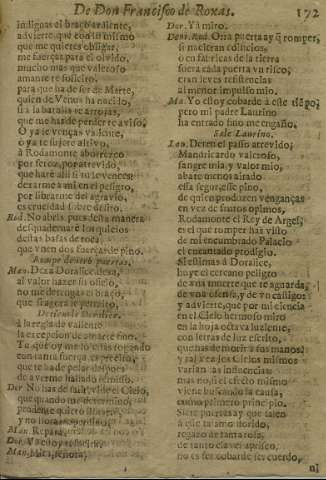 De Don Francisco de Roxas. 172
indignas el braço valiente,
advierte que con lo mismo
que me quieres obligar,
me fuerças para el olvido,
mucho mas que valeroso
amante te solicito,
para que ha de ser de Marte,
quien de Venus ha nacido,
si a la batalla te arrojas,
que me has de perder te aviso,
O ya te venças valiente,
ò ya te sujete altivo,
à Rodamonte aborrezco
por feroz, por atrevido,
que harè alli si tu le vences:
dexarme a mi en el peligro,
por librarme del agravio,
es crueldad sobre delito.
Rod. No abris, pues desta manera
desquadernarè los quicios
destas hojas de
que vnen dos de pino.
Rompe dentro puertas.
Man. Dexa Doralice dexa,
al valor hazer su oficio,
no me detengas el braço,
que
Detienele Doralice.
à la regla de valiente
la excepcion de amante fino.
Te que oy me lo estàs rogando
con tanta fuerça, es preciso,
que te ha de pesar despues
de averme hallado remisso.
Dor. No has de salir, vive el Cielo,
que quando me determino,
prudente quiero librarte,
y no llorarte perdido.
Man. Repara,
Dor.
Man. Mira, señora,
Dor. Ya miro.
Dent. Rod. Otra puerta ay q̃ romper,
si nacieran edificios,
o en fabricas de la tierra
fuera cada puerta vn risco,
eran leves resistencias
al menor impulso mio.
Ma. Yo estoy cobarde à este tiẽpo;
pero mi padre Laurino
ha entrado sino me engaño.
Sale Laurino.
Lau. Deten el passo atrevido,
Mandricardo valeroso,
sangre mia, y valor mio,
abate menos airado
essa segur, esse pino,
de quien producen venganças
en vez de frutos opimos,
Rodamonte el Rey de Argel,
es el que romper has visto
de mi encumbrado Palacio
el encantado prodigio.
Si estimas à Doralice,
hoy el cercano peligro
de vna muerte que te aguarda,
de vna ofensa, y de vn castigo:
y advierte, que por mi ciencia
en el Cielo hermoso miro
en la hoja octava luziente,
con letras de luz escrito,
que has de morir à sus manos:
y tal vez los Cielos mismos
varian las influencias;
mas no, si el efecto mismo
viene buscando la causa,
como primero principio.
Siete puertas
à que tu amor dormido,
regazo de tanta rosa,
de tanto clavel aprisco,
no es ser cobarde ser cuerdo,
ni